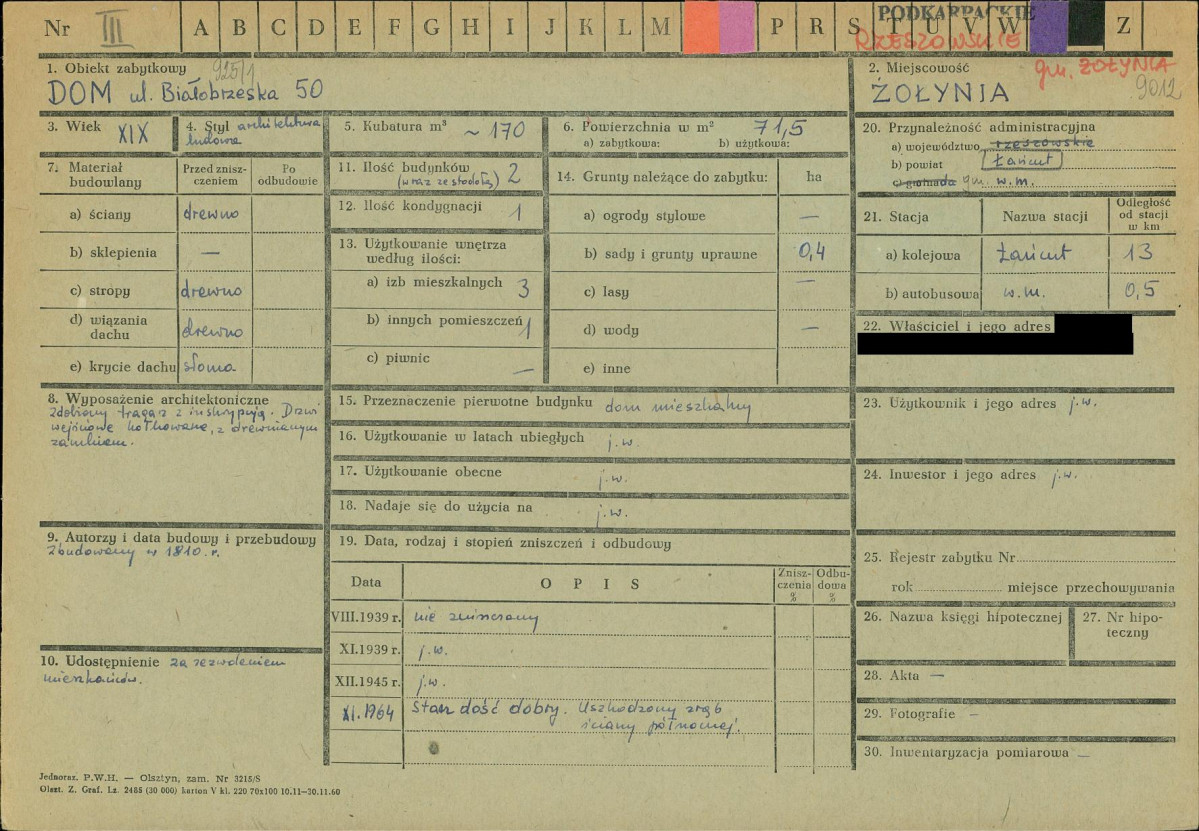 Nr III A B C D E F G H I J K L M P R S T U V W Z
PODKARPACKIE
RZESZOWSKIE
1. Obiekt zabytkowy 925/1
DOM ul. Białobrzeska 50
2. Miejscowość gm. ŻOŁYNIA
ŻOŁYNIA 9012
3. Wiek XIX
4. Styl architektura
ludowa
5. Kubatura m³ ~170
6. Powierzchnia w m² 71,5
a) zabytkowa: b) użytkowa:
7. Materiał
budowlany
Przed znisz-
czeniem
Po
odbudowie
a) ściany drewno
b) sklepienia —
c) stropy drewno
d) wiązania
dachu drewno
e) krycie dachu słoma
8. Wyposażenie architektoniczne
zdobiony tragarz z inskrypcją. Drzwi
wejściowe kołkowane, z drewnianym
zamkiem.
9. Autorzy i data budowy i przebudowy
zbudowany w 1810 r.
10. Udostępnienie za zezwoleniem
mieszkańców.
11. Ilość budynków
(wraz ze stodołą) 2
12. Ilość kondygnacji 1
13. Użytkowanie wnętrza
według ilości:
a) izb mieszkalnych 3
b) innych pomieszczeń 1
c) piwnic —
14. Grunty należące do zabytku: ha
a) ogrody stylowe —
b) sady i grunty uprawne 0,4
c) lasy —
d) wody —
e) inne
15. Przeznaczenie pierwotne budynku dom mieszkalny
16. Użytkowanie w latach ubiegłych j.w.
17. Użytkowanie obecne j.w.
18. Nadaje się do użycia na j.w.
19. Data, rodzaj i stopień zniszczeń i odbudowy
Data OPIS
Znisz-
czenia
%
Odbu-
dowa
%
VIII.1939 r. nie zniszczony
XI.1939 r. j.w.
XII.1945 r. j.w.
XI.1964 Stan dość dobry. Uszkodzony zrąb
ściany północnej.
20. Przynależność administracyjna
a) województwo rzeszowskie
b) powiat Łańcut
c) gromada gm. w.m.
21. Stacja Nazwa stacji
Odległość
od stacji
w km
a) kolejowa Łańcut 13
b) autobusowa w.m. 0,5
22. Właściciel i jego adres
23. Użytkownik i jego adres j.w.
24. Inwestor i jego adres j.w.
25. Rejestr zabytku Nr
rok miejsce przechowywania
26. Nazwa księgi hipotecznej
27. Nr hipo-
teczny
28. Akta —
29. Fotografie —
30. Inwentaryzacja pomiarowa —
Jednoraz. P.W.H. — Olsztyn, zam. Nr 3215/S
Olszt. Z. Graf. Lz. 2485 (30 000) karton V kl. 220 70x100 10.11—30.11.60